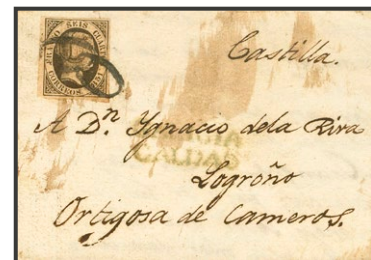 FRANCO SEIS CUARTOS
CORREOS 1851
Castilla.
A Dn. Ygnacio dela Riva
CALDAS
Logroño
Ortigosa de Cameros.